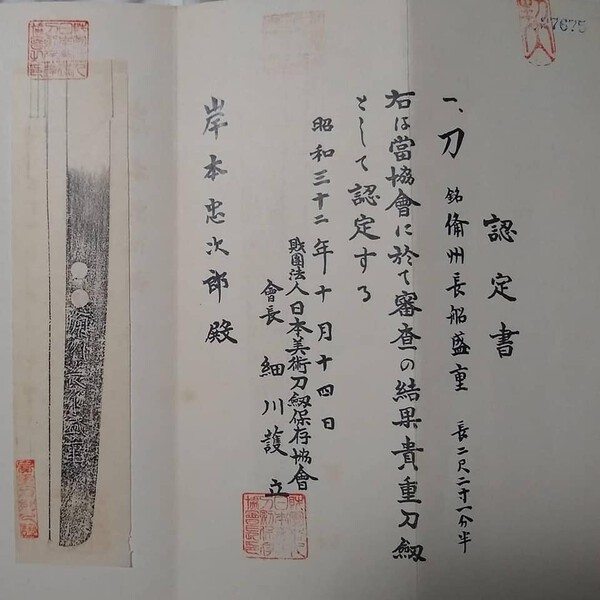 7675
認定書
一、刀 銘 備州長船盛重 長二尺二寸一分半
右は當協會に於て審査の結果貴重刀劔
として認定する
昭和三十二年十月十四日
財團法人日本美術刀劔保存協會
會長 細川護立
岸本忠次郎殿